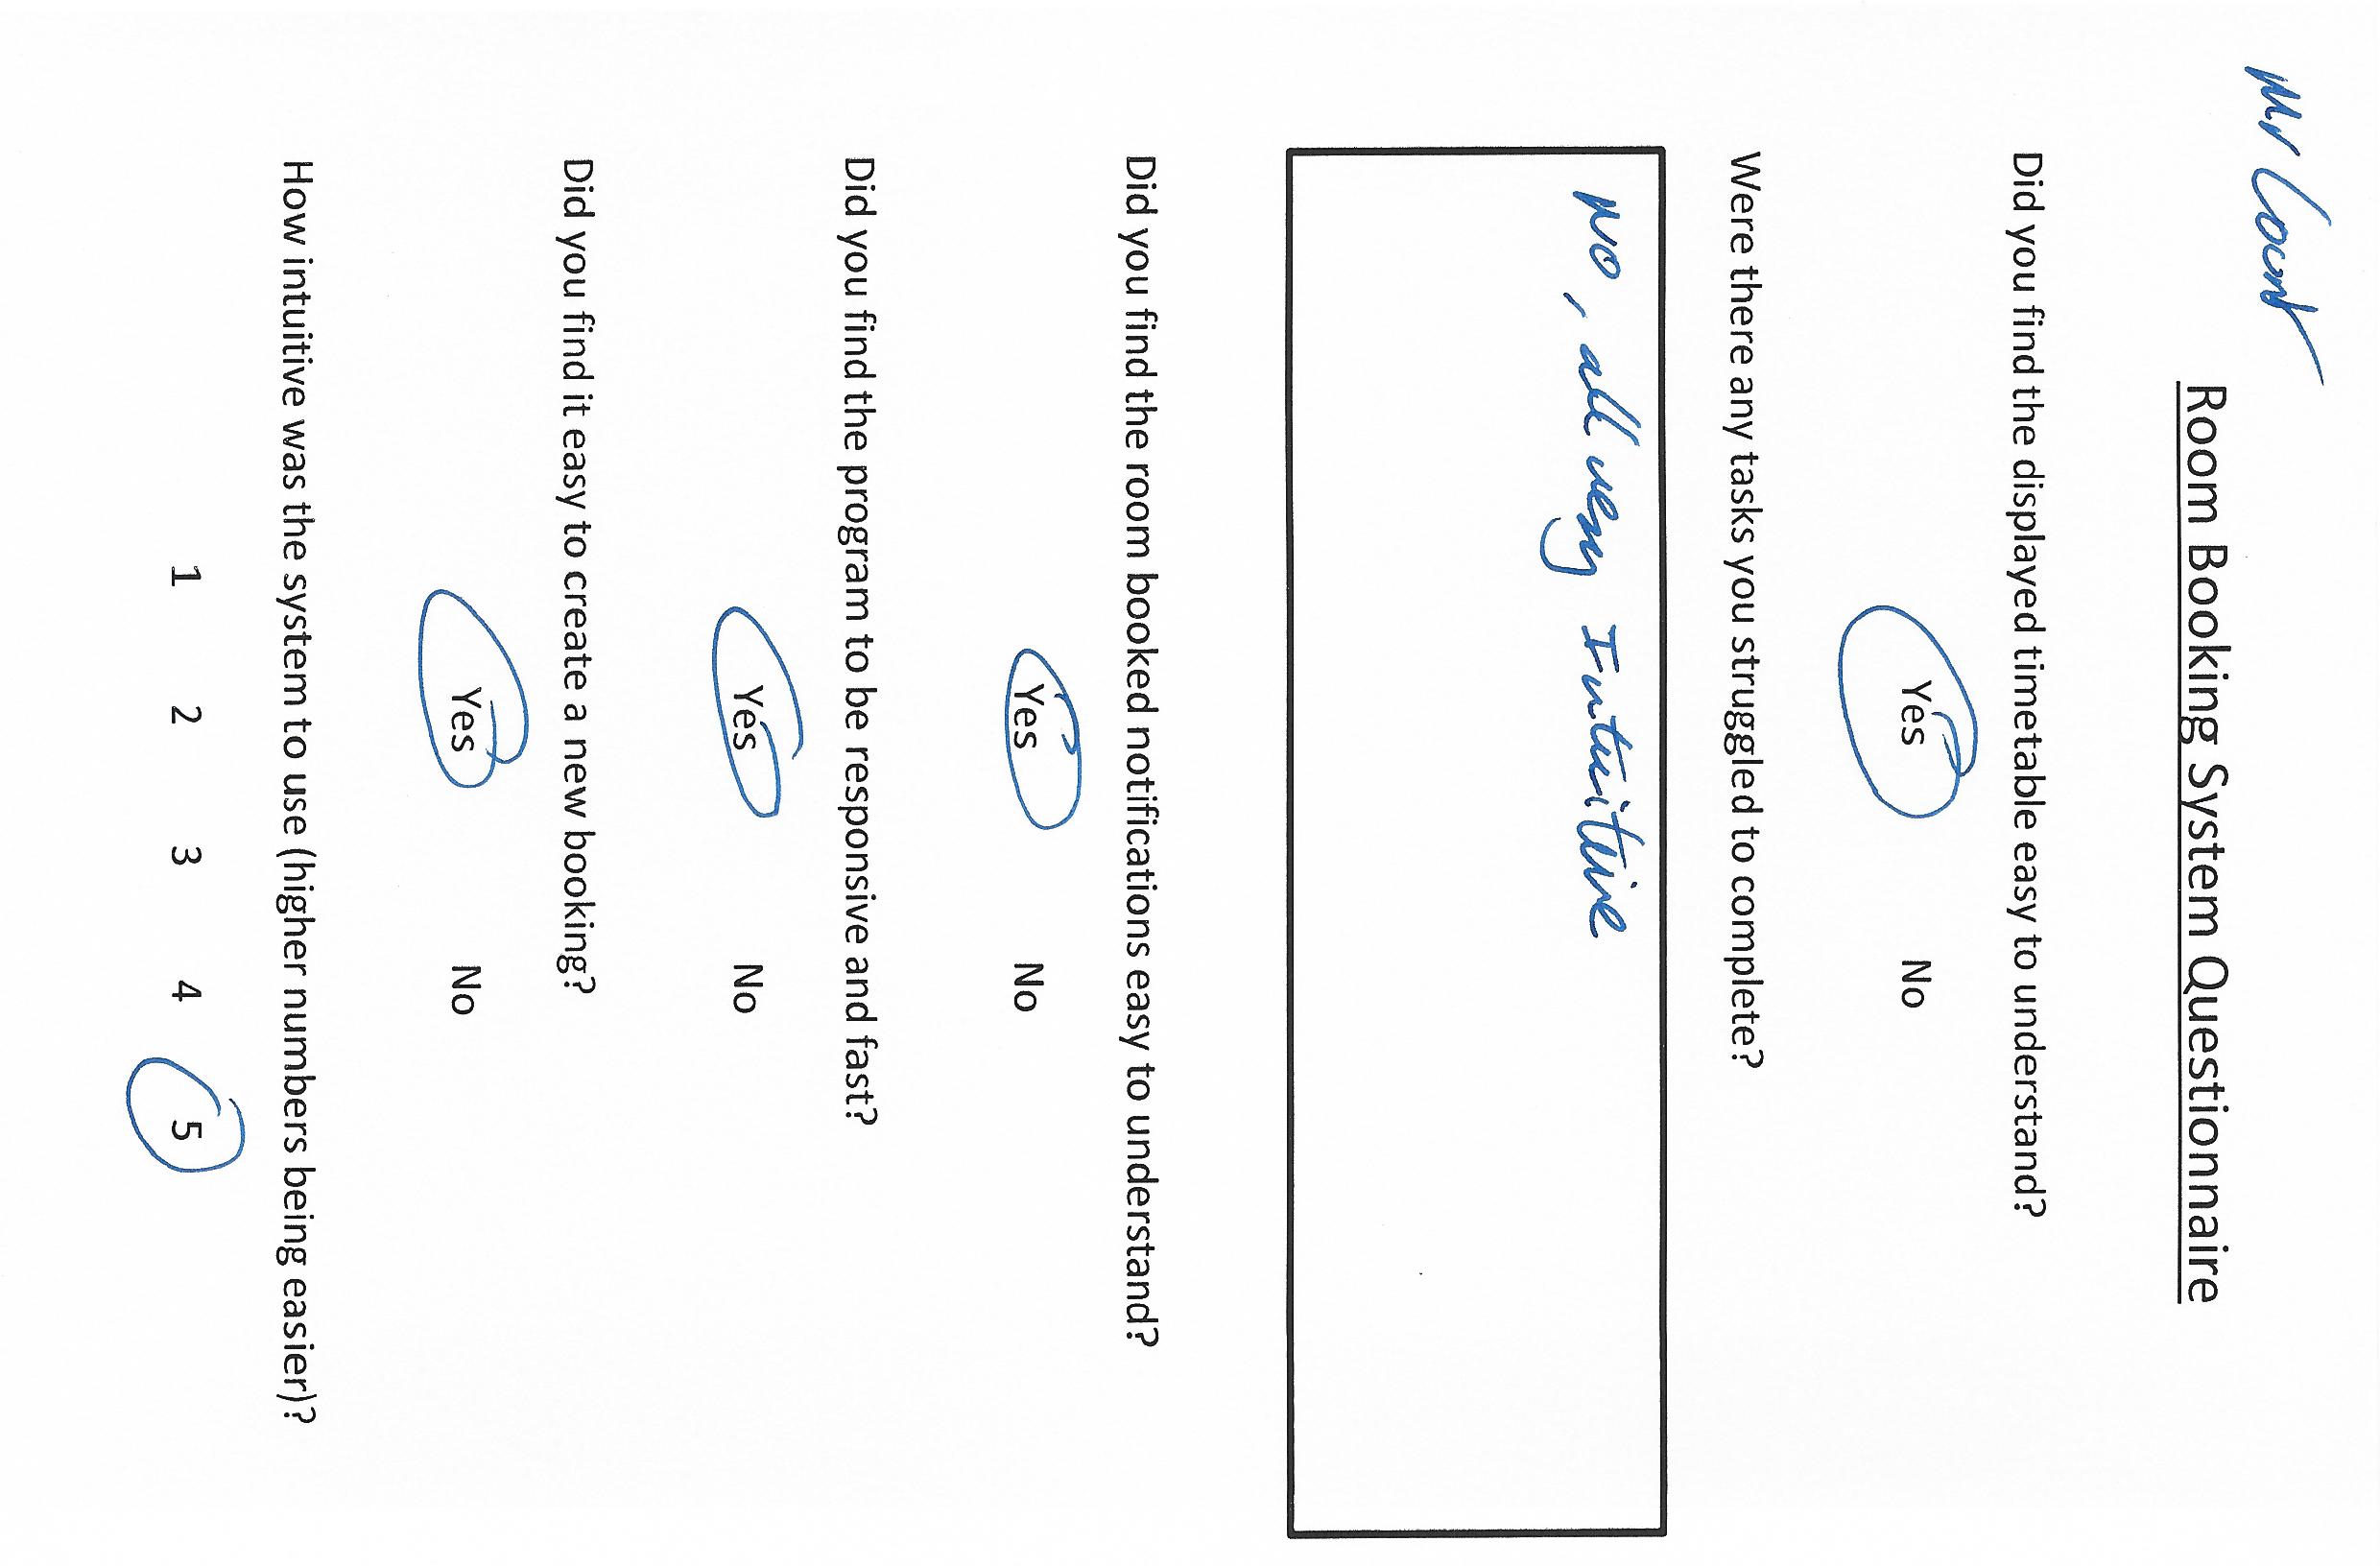 Mr Count
Room Booking System Questionnaire
Did you find the displayed timetable easy to understand?
Yes No
Were there any tasks you struggled to complete?
No, all very Intuitive
Did you find the room booked notifications easy to understand?
Yes No
Did you find the program to be responsive and fast?
Yes No
Did you find it easy to create a new booking?
Yes No
How intuitive was the system to use (higher numbers being easier)?
1 2 3 4 5